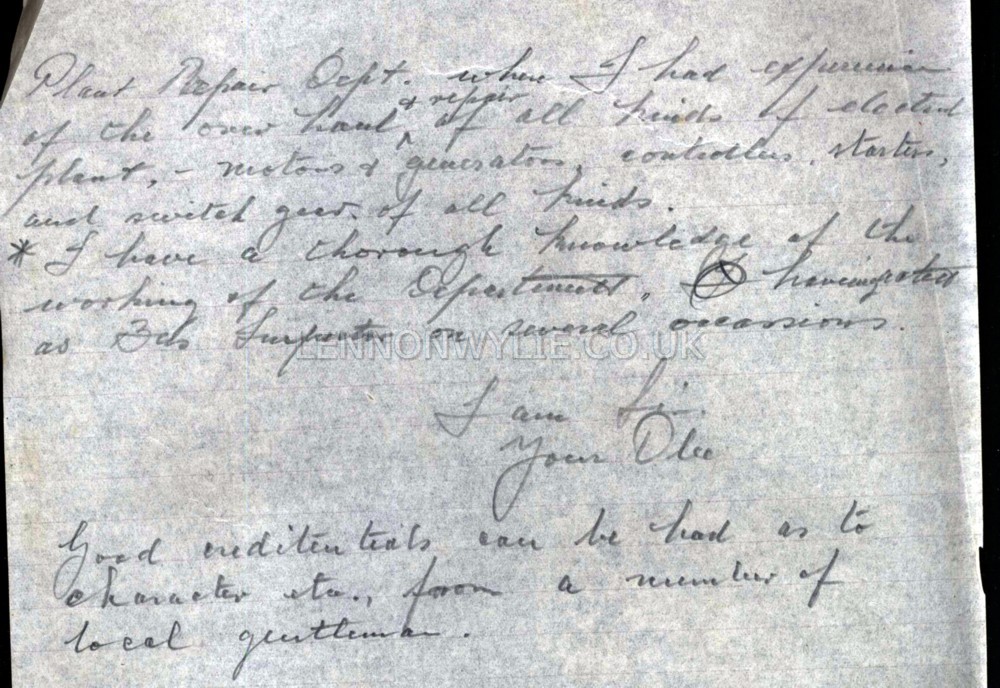 Plant Repair Dept. where I had experience
of the over haul & repair of all kinds of electrical
plant, - motors & generators, controllers, starters,
and switch gear. of all kinds.
* I have a thorough knowledge of the
working of the Department, having acted
as on several occassions.
LENNONWYLIE.CO.UK
I am Sir.
Your
Good creditentials can be had as to
character etc., from a number of
local gentleman.